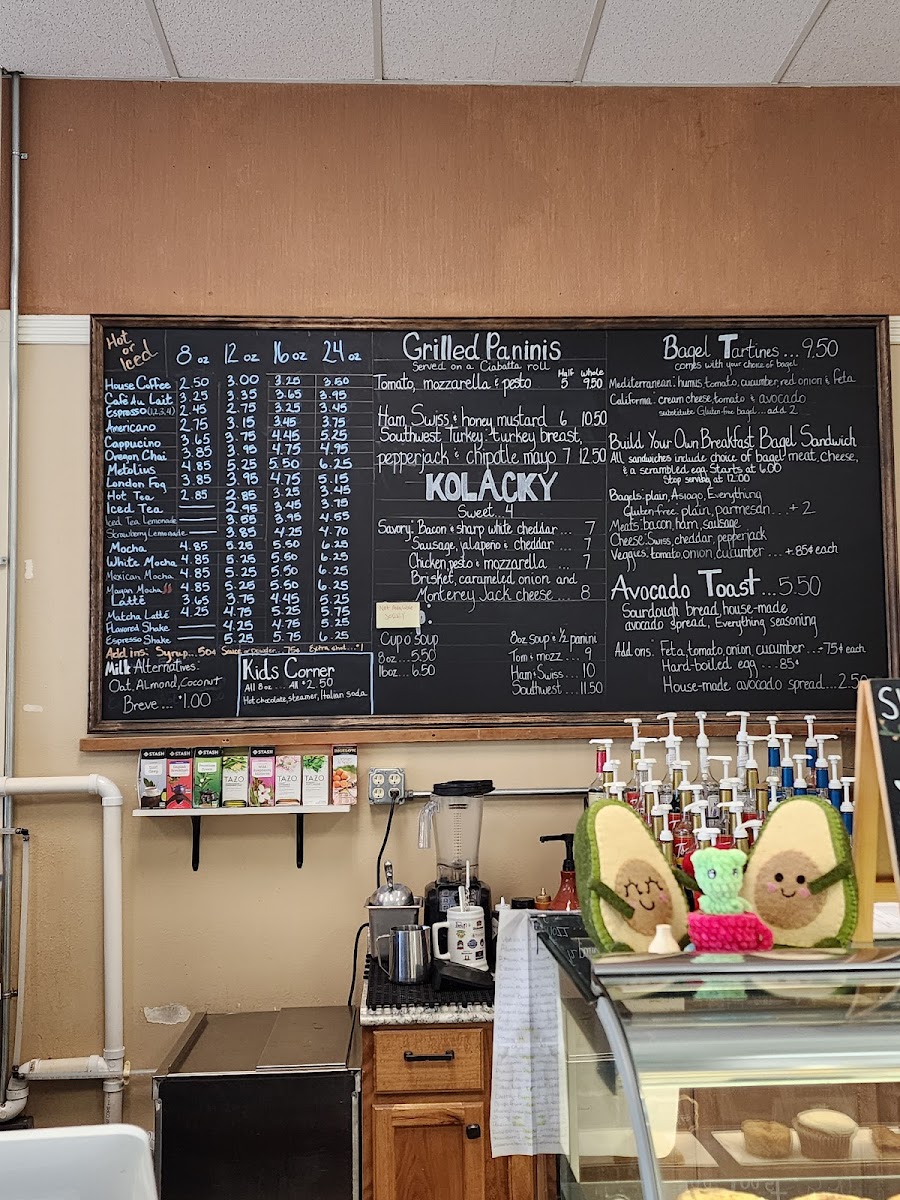 Hot or Iced
8 oz 12 oz 16 oz 24 oz
House Coffee 2.50 3.00 3.25 3.50
Café Au Lait 3.25 3.35 3.65 3.95
Espresso (1,2,3,4) 2.45 2.75 3.25 3.45
Americano 2.75 3.15 3.45 3.75
Cappucino 3.65 3.75 4.45 5.25
Oregon Chai 3.85 3.95 4.75 4.95
Metolius 4.85 5.25 5.50 6.25
London Fog 3.85 3.95 4.75 5.15
Hot Tea 2.85 2.85 3.25 3.45
Iced Tea 2.95 3.45 3.75
Iced Tea Lemonade 3.55 3.95 4.55
Strawberry Lemonade 3.85 4.25 4.70
Mocha 4.85 5.25 5.50 6.25
White Mocha 4.85 5.25 5.50 6.25
Mexican Mocha 4.85 5.25 5.50 6.25
Mayan Mocha 4.85 5.25 5.50 6.25
Latté 3.65 3.75 4.45 5.25
Matcha Latté 4.25 4.75 5.25 5.75
Flavored Shake 4.25 4.75 5.25
Espresso Shake 5.25 5.75 6.25
Add ins: Syrup... 50¢ Sauce or Powder... 75¢ Extra shot... $1
Milk Alternatives:
Oat, Almond, Coconut
Breve ... $1.00
Kids Corner
All 8 oz ... All $2.50
Hot chocolate, steamer, Italian soda
Grilled Paninis
Served on a Ciabatta roll
Half Whole
Tomato, mozzarella & pesto 5 9.50
Ham, Swiss & honey mustard 6 10.50
Southwest Turkey: turkey breast,
pepperjack & chipotle mayo 7 12.50
KOLÁCKY
Sweet...4
Savory: Bacon & sharp white cheddar ... 7
Sausage, jalapeño & cheddar ... 7
Chicken pesto & mozzarella ... 7
Brisket, carameled onion and
Monterey Jack cheese ... 8
Cup o' Soup
8oz ... 5.50
16oz ... 6.50
8oz Soup & ½ panini
Tom & mozz ... 9
Ham & Swiss ... 10
Southwest ... 11.50
Bagel Tartines ... 9.50
comes with your choice of bagel
Mediterranean: humus, tomato, cucumber, red onion & feta
California: cream cheese, tomato & avocado
substitute Gluten-free bagel ... add 2
Build Your Own Breakfast Bagel Sandwich
All sandwiches include choice of bagel, meat, cheese,
& a scrambled egg. Starts at 6.00
Stop serving at 12:00
Bagels: plain, Asiago, Everything
Gluten-free: plain, parmesan ... + 2
Meats: bacon, ham, sausage
Cheese: Swiss, cheddar, pepperjack
Veggies: tomato, onion, cucumber .... +.85¢ each
Avocado Toast ... 5.50
Sourdough bread, house-made
avocado spread, Everything seasoning
Add ons: Feta, tomato, onion, cucumber...75¢ each
Hard-boiled egg .... 85¢
House-made avocado spread...2.50
STASH STASH STASH TAZO STASH TAZO TAZO